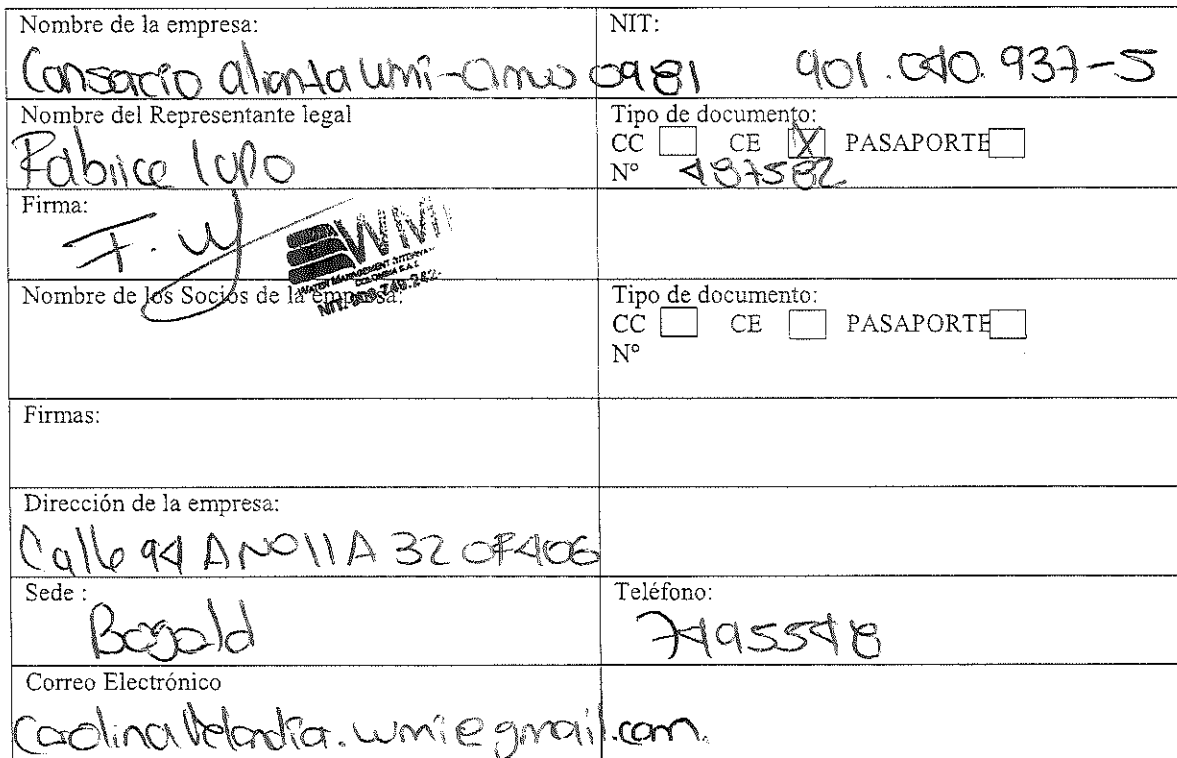 Nombre de la empresa:
Consorcio alianza wmi-amco 0981
NIT:
901.040.937-5
Nombre del Representante legal
Fabrice lupo
Tipo de documento:
CC CE X PASAPORTE
N° 487582
Firma:
WMI
WATER MANAGEMENT
COLOMBIA S.A.S
Nombre de los Socios de la empresa:
Tipo de documento:
CC CE PASAPORTE
N°
Firmas:
Dirección de la empresa:
Calle 94 A N° 11A 32 OF 406
Sede :
Bogotá
Teléfono:
7495548
Correo Electrónico
Carolinavelandia.wmi@gmail.com.